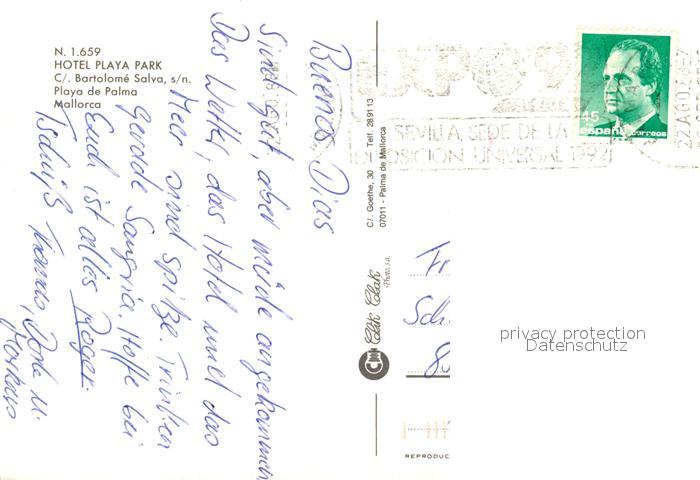 N. 1.659
HOTEL PLAYA PARK
C/. Bartolomé Salva, s/n.
Playa de Palma
Mallorca
Buenos Dias
Sind gut, aber müde angekommen,
Das Wetter, das Hotel und das
Meer sind spitze. Trinken
gerade Sangria. Hoffe bei
Euch ist alles Roger.
Tschüß
Markus
C/. Goethe, 30 Telf. 289113
07011 - Palma de Mallorca
Clik Clak
Photo, s.a.
EXPO 9
SEVILLA SEDE DE LA
EXPOSICION UNIVERSAL 1992
45
españa correos
22 AGO
Fr
Sch
privacy protection
Datenschutz
REPRODUC